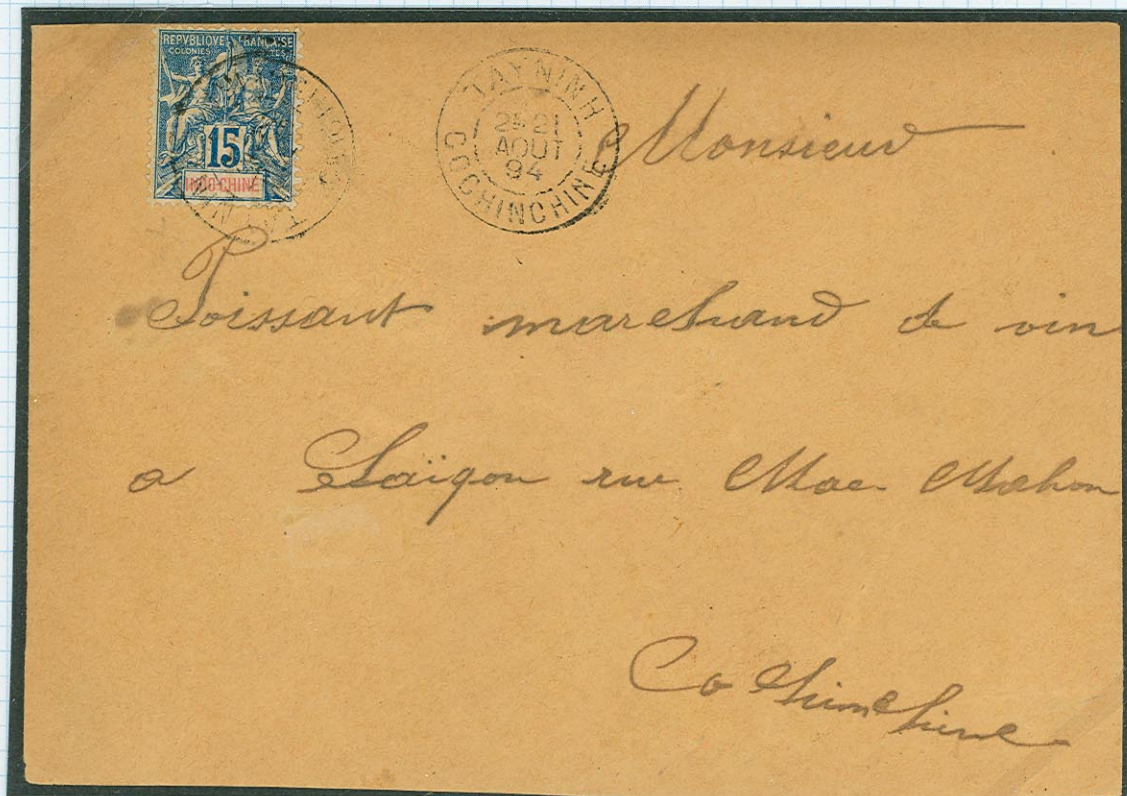 REPVBLIQVE FRANÇAISE
COLONIES POSTES
15
INDO-CHINE
TAYNINH
2E 21
AOUT
94
COCHINCHINE
Monsieur
Poissant marchand de vin
a Saïgon rue Mac-Mahon
Cochinchine